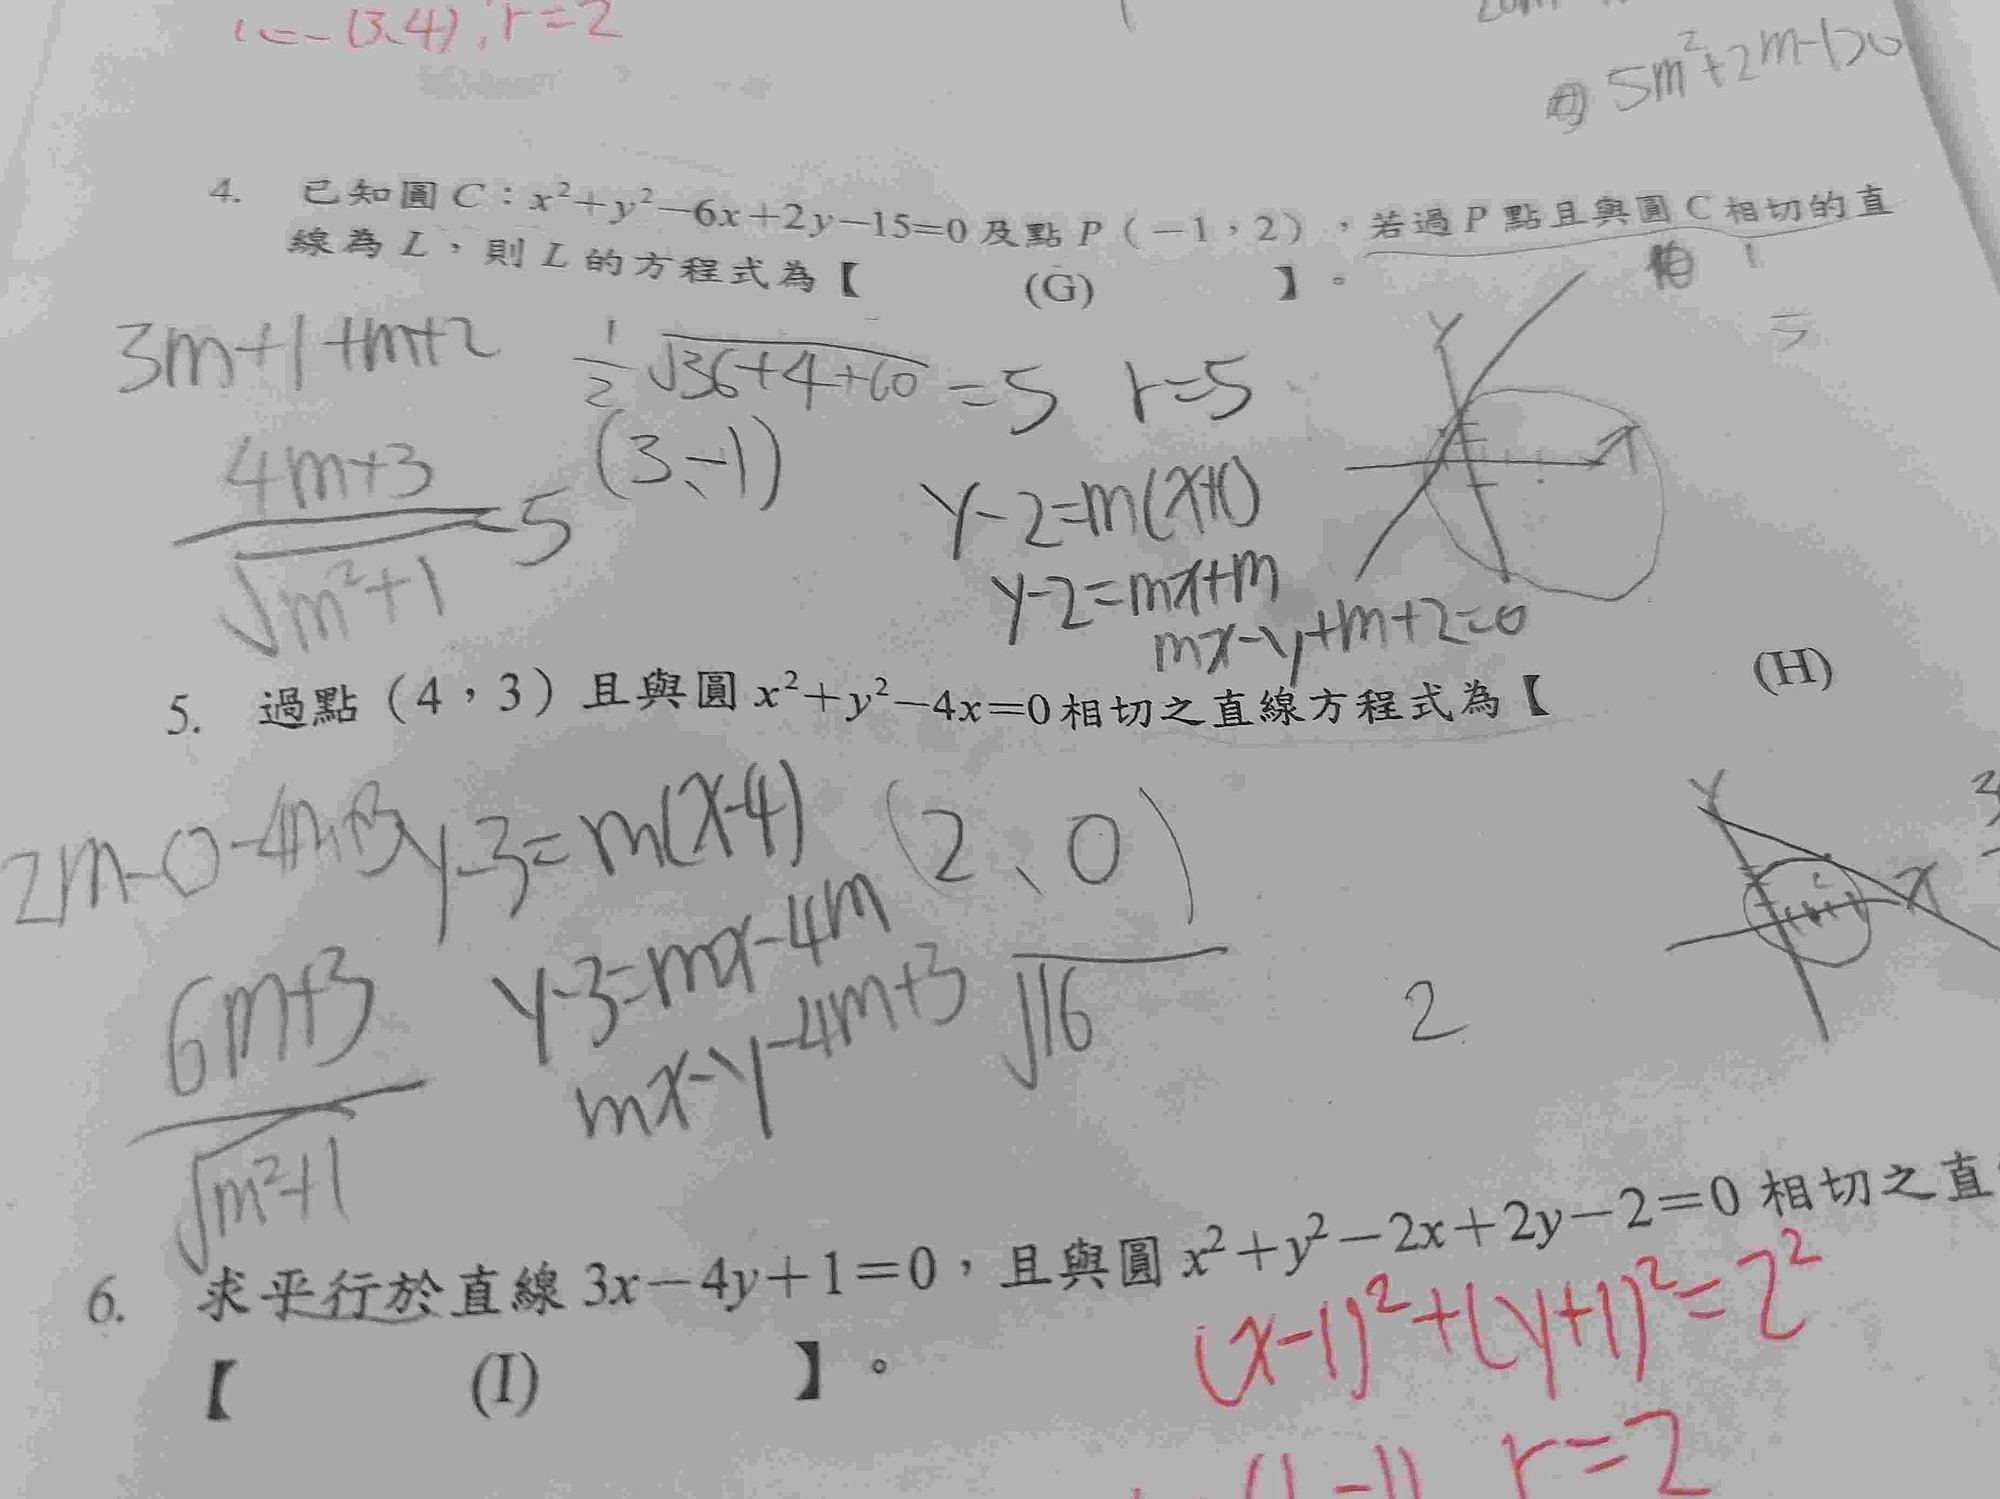 (3、4), r=2
5m²+2m-1>0
4. 已知圓 C：x²+y²-6x+2y-15=0 及點 P（-1，2），若過 P 點且與圓 C 相切的直
線為 L，則 L 的方程式為【 (G) 】。
3m+1+m+2
1/2 √36+4+60 =5 r=5
(3、-1)
4m+3
√m²+1
=5
y-2=m(x+1)
y-2=mx+m
mx-y+m+2=0
Y
5. 過點（4，3）且與圓 x²+y²-4x=0 相切之直線方程式為【 (H)
2m-0-4m+3
y-3=m(x-4)
(2、0)
y-3=mx-4m
mx-y-4m+3
√16
2
6m+3
√m²+1
Y
X
6. 求平行於直線 3x-4y+1=0，且與圓 x²+y²-2x+2y-2=0 相切之直
【 (I) 】。
(x-1)²+(y+1)²=2²
(1 -1) r=2